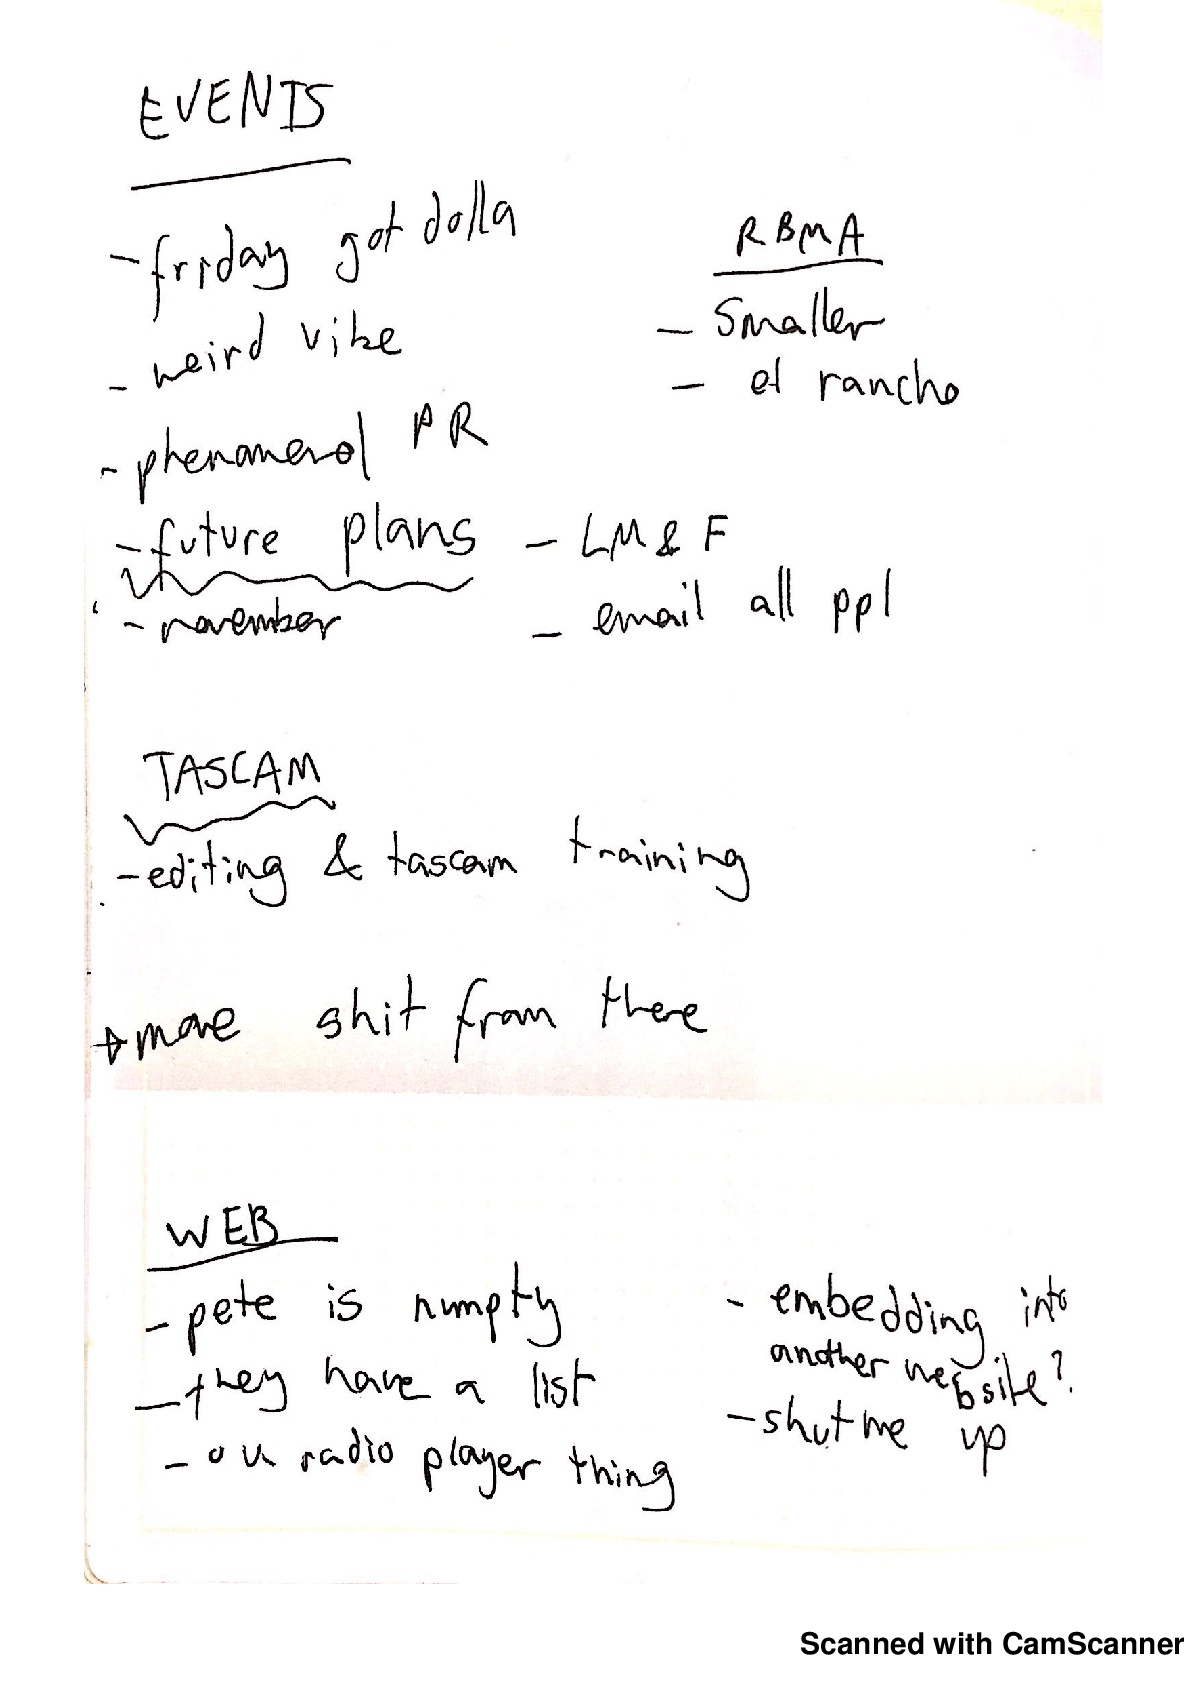 EVENTS
- friday got dolla
- weird vibe
- phenomenol PR
- future plans
- november
RBMA
- smaller
- el rancho
- LM & F
- email all ppl
TASCAM
- editing & tascam training
move shit from there
WEB
- pete is numpty
- they have a list
- uk radio player thing
- embedding into
another website?
- shut me up
Scanned with CamScanner